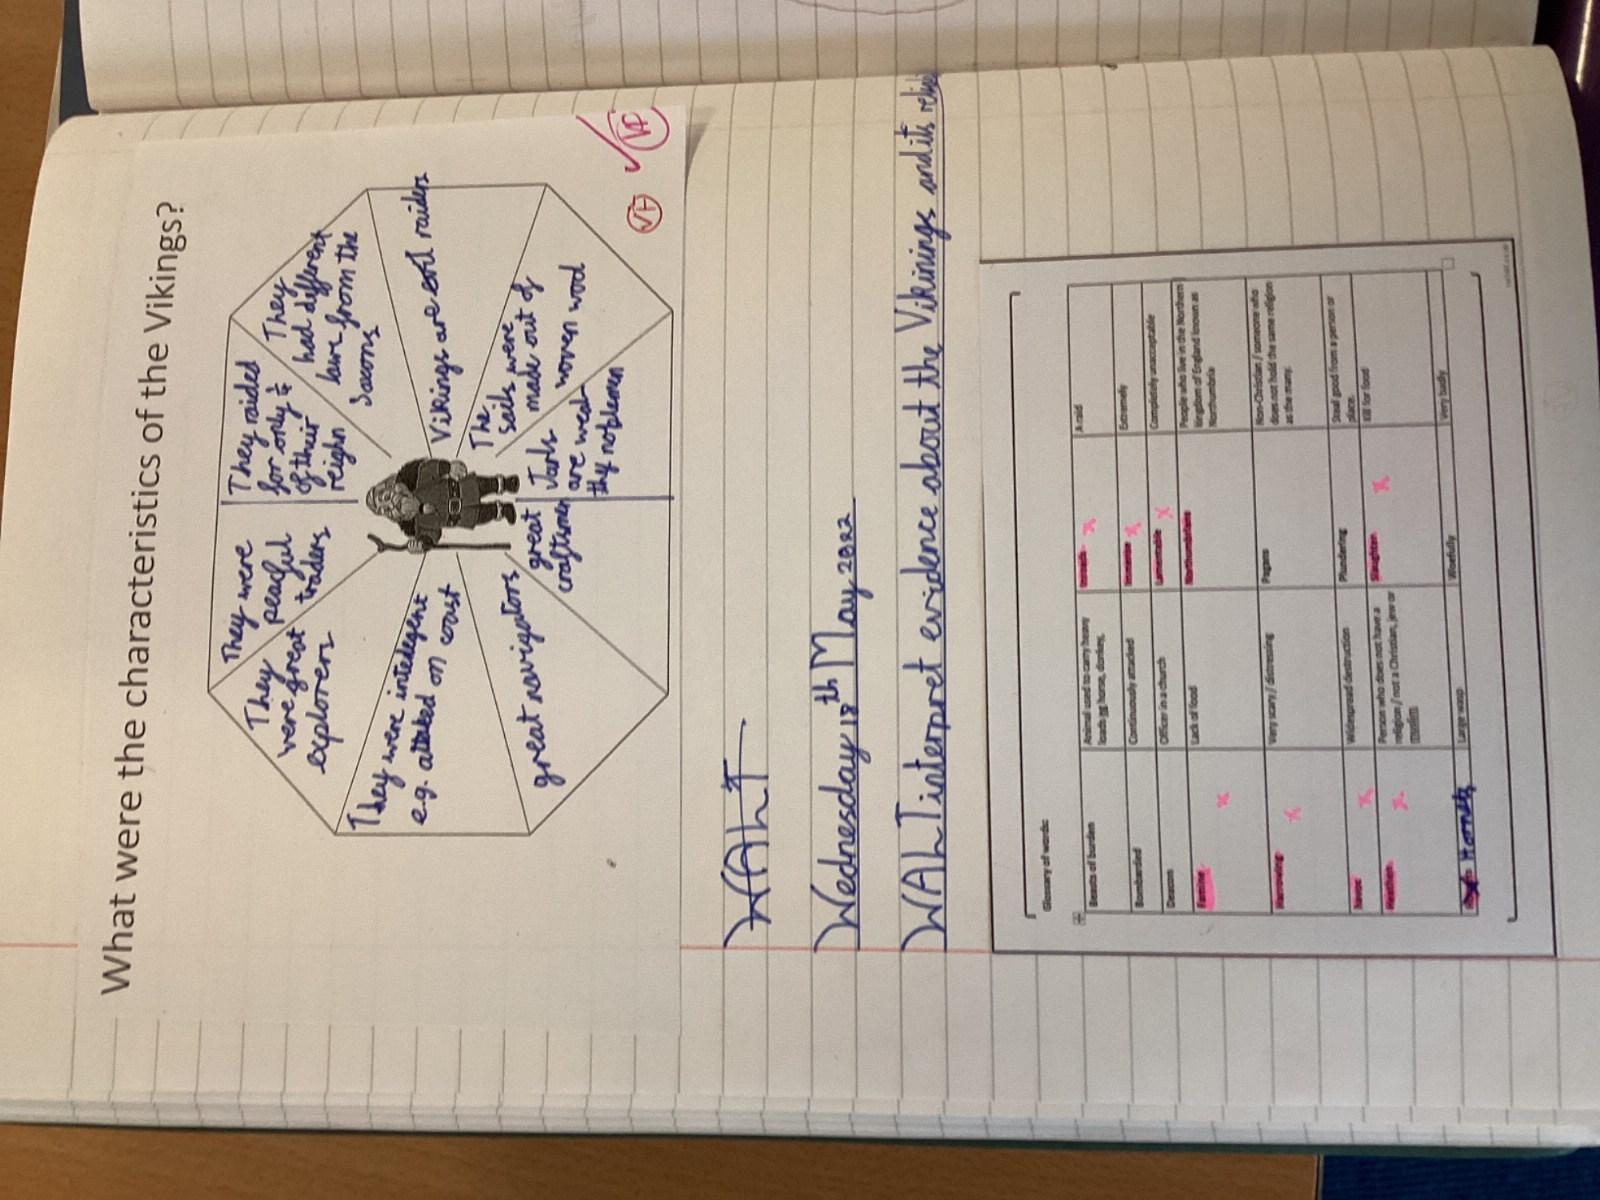 What were the characteristics of the Vikings?
They raided
for only ¼
of their
reign
They
had different
laws from the
Saxons
Vikings are evil raiders
The
sails were
made out of
woven wool
Jarls
are weal-
thy noblemen
great
craftsmen
great navigators
They were intelegent
e.g. attaked on coast
They
were great
explorers
They were
peaceful
traders
VF
VF
WAhT
Wednesday 18th May 2022
WAhT interpret evidence about the Vikinings and its
Glossary of words:
Beasts of burden
Animal used to carry heavy
loads eg horse, donkey,
Inroads
A raid
Bombarded
Continuously attacked
Immense
Extremely
Deacon
Officer in a church
Lamentable
Completely unacceptable
Famine
Lack of food
Northumbrians
People who live in the Northern
kingdom of England known as
Northumbria
Harrowing
Very scary / distressing
Pagans
Non-Christian / someone who
does not hold the same religion
as the many.
havoc
Widespread destruction
Plundering
Steal good from a person or
place.
Heathen
Person who does not have a
religion / not a Christian, jew or
muslim
Slaughter
Kill for food
Hornets
Large wasp
Woefully
Very badly